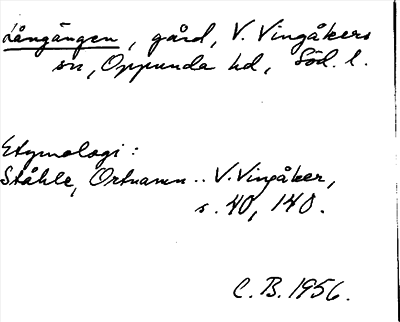 Långängen, gård, V. Vingåkers
sn, Oppunda hd, Söd. l.
Etymologi:
Ståhle, Ortnamn .. V. Vingåker,
s. 40, 140.
C. B. 1956.